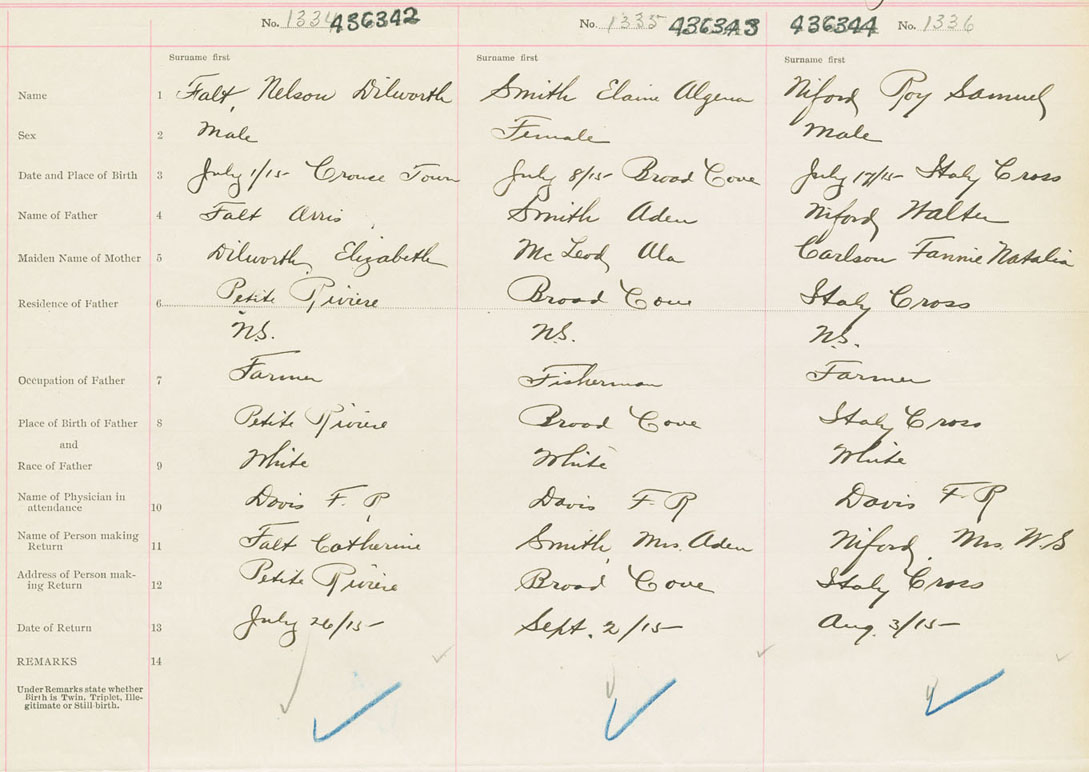 No. 1334 436342 No. 1335 436343 436344 No. 1336
Surname first Surname first Surname first
Name 1 Falt, Nelson Dilworth Smith Elaine Algena Niford Roy Samuel
Sex 2 Male Female Male
Date and Place of Birth 3 July 1/15 Crouse Town July 8/15 Broad Cove July 17/15 Italy Cross
Name of Father 4 Falt Arris Smith Aden Niford Walter
Maiden Name of Mother 5 Dilworth Elizabeth McLeod Ala Carlson Fannie Natalia
Residence of Father 6 Petite Riviere Broad Cove Italy Cross
N.S. N.S. N.S.
Occupation of Father 7 Farmer Fisherman Farmer
Place of Birth of Father 8 Petite Riviere Broad Cove Italy Cross
and
Race of Father 9 White White White
Name of Physician in
attendance 10 Davis F. R Davis F R Davis F. R
Name of Person making
Return 11 Falt Catherine Smith, Mrs. Aden Niford, Mrs. W.S
Address of Person mak-
ing Return 12 Petite Riviere Broad Cove Italy Cross
Date of Return 13 July 26/15 Sept. 2/15 Aug. 3/15
REMARKS 14
Under Remarks state whether
Birth is Twin, Triplet, Ille-
gitimate or Still-birth.